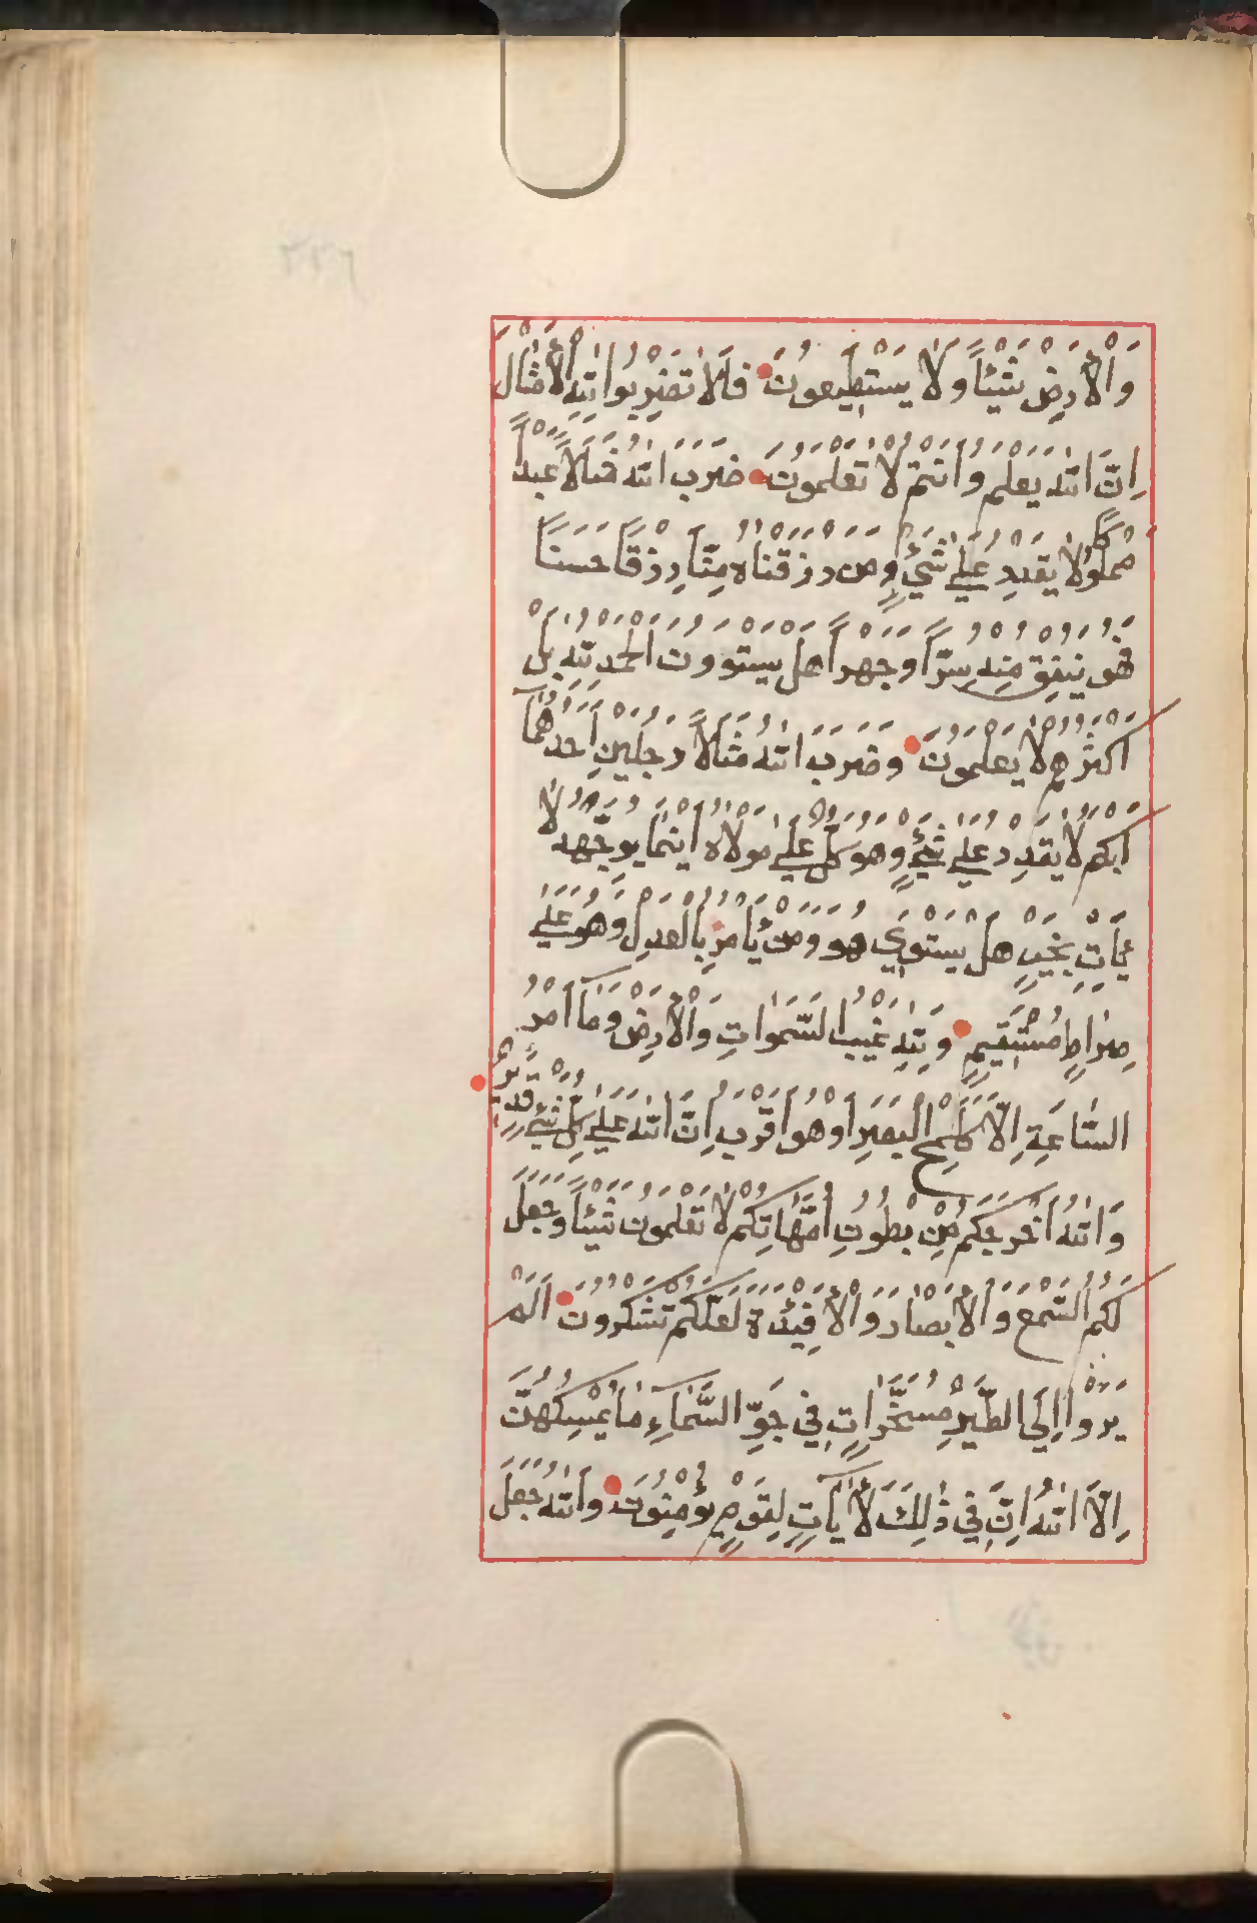 وَالْأَرْضِ شَيْئًا وَلَا يَسْتَطِيعُونَ فَلَا تَضْرِبُوا لِلّٰهِ الْأَمْثَالَ
اِنَّ اللّٰهَ يَعْلَمُ وَاَنْتُمْ لَا تَعْلَمُونَ ضَرَبَ اللّٰهُ مَثَلًا عَبْدًا
مَمْلُوكًا لَا يَقْدِرُ عَلٰي شَيْءٍ وَمَنْ رَزَقْنَاهُ مِنَّا رِزْقًا حَسَنًا
فَهُوَ يُنْفِقُ مِنْهُ سِرًّا وَجَهْرًا هَلْ يَسْتَوُونَ الْحَمْدُ لِلّٰهِ بَلْ
اَكْثَرُهُمْ لَا يَعْلَمُونَ وَضَرَبَ اللّٰهُ مَثَلًا رَجُلَيْنِ اَحَدُهُمَآ
اَبْكَمُ لَا يَقْدِرُ عَلٰي شَيْءٍ وَهُوَ كَلٌّ عَلٰي مَوْلَاهُ اَيْنَمَا يُوَجِّهْهُ لَا
يَأْتِ بِخَيْرٍ هَلْ يَسْتَوِي هُوَ وَمَنْ يَأْمُرُ بِالْعَدْلِ وَهُوَ عَلٰي
صِرَاطٍ مُسْتَقِيمٍ وَلِلّٰهِ غَيْبُ السَّمٰوَاتِ وَالْأَرْضِ وَمَآ اَمْرُ
السَّاعَةِ اِلَّا كَلَمْحِ الْبَصَرِ اَوْ هُوَ اَقْرَبُ اِنَّ اللّٰهَ عَلٰي كُلِّ شَيْءٍ قَدِيرٌ
وَاللّٰهُ اَخْرَجَكُمْ مِنْ بُطُونِ اُمَّهَاتِكُمْ لَا تَعْلَمُونَ شَيْئًا وَجَعَلَ
لَكُمُ السَّمْعَ وَالْأَبْصَارَ وَالْأَفْئِدَةَ لَعَلَّكُمْ تَشْكُرُونَ اَلَمْ
يَرَوْا اِلَي الطَّيْرِ مُسَخَّرَاتٍ فِي جَوِّ السَّمَآءِ مَا يُمْسِكُهُنَّ
اِلَّا اللّٰهُ اِنَّ فِي ذٰلِكَ لَأٰيَاتٍ لِقَوْمٍ يُؤْمِنُونَ وَاللّٰهُ جَعَلَ